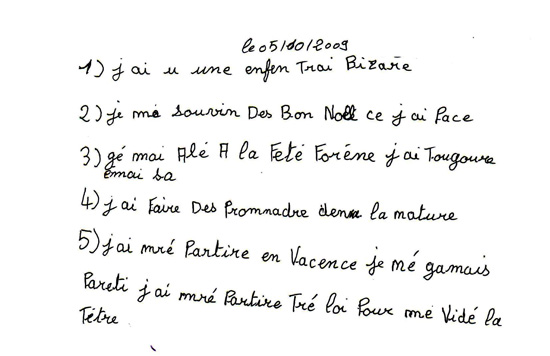 le 05/10/2009
1) j'ai u une enfen Trai Bizare
2) je me souvin Des Bon Noell ce j'ai Pace
3) gé mai Alé A la Feté Foréne j'ai Tougoure
émai sa
4) j'ai Faire Des Promnadre den la nature
5) j'ai mré Partire en Vacence je mé gamais
Pareti j'ai mré Partire Tré loi Pour me Vidé la
Tétre